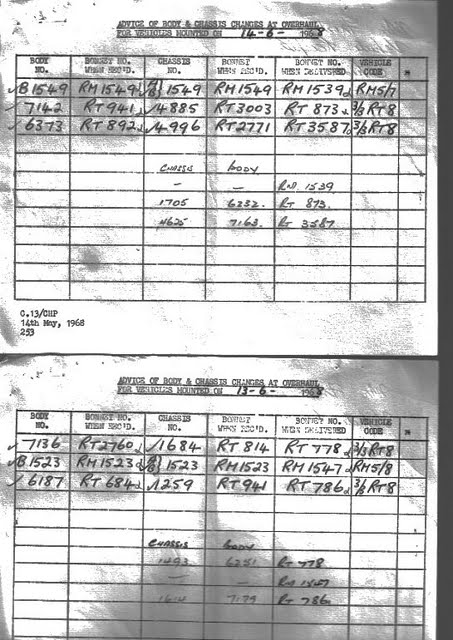 ADVICE OF BODY & CHASSIS CHANGES AT OVERHAUL
FOR VEHICLES MOUNTED ON 14-6- 1968
BODY NO. BONNET NO. WHEN REC'D. CHASSIS NO. BONNET WHEN REC'D. BONNET NO. WHEN DELIVERED VEHICLE CODE
✓B1549 RM1549 1549 RM1549 RM1539 RM5/7
✓7142 RT941 ✓4885 RT3003 RT 873 3/3RT8
✓6373 RT892 ✓4996 RT2771 RT3587 3/3RT8
CHASSIS BODY
— — RM 1539
1705 6232. RT 873.
4625 7163. RT 3587
C.13/CHP
14th May, 1968
253
ADVICE OF BODY & CHASSIS CHANGES AT OVERHAUL
FOR VEHICLES MOUNTED ON 13-6- 1968
BODY NO. BONNET NO. WHEN REC'D. CHASSIS NO. BONNET WHEN REC'D. BONNET NO. WHEN DELIVERED VEHICLE CODE
✓7136 RT2760 ✓1684 RT 814 RT 778 3/3RT8
✓B1523 RM1523 1523 RM1523 RM1547 RM5/8
✓6187 RT 684 ✓1259 RT941 RT786 3/3RT8
CHASSIS BODY
1493 6251 RT 778
— — RM 1547
1614 7179 RT 786